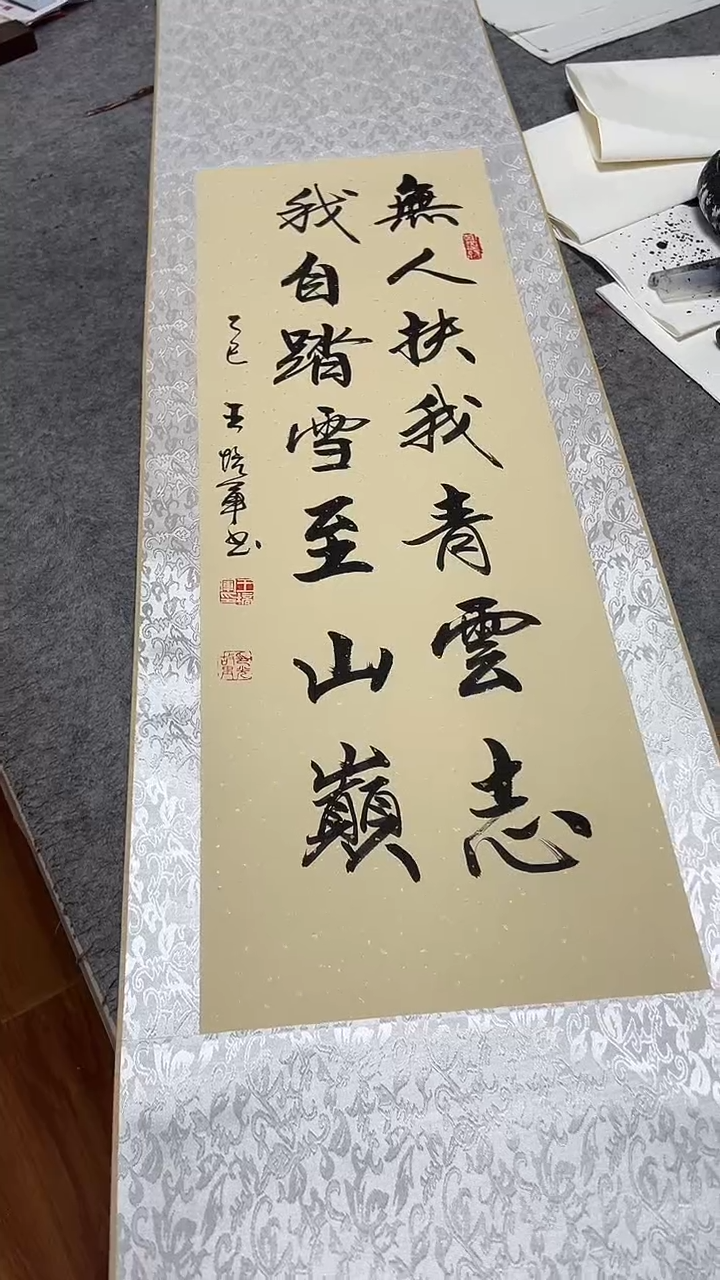 無人扶我青雲志
我自踏雪至山巔
乙巳 王培軍书